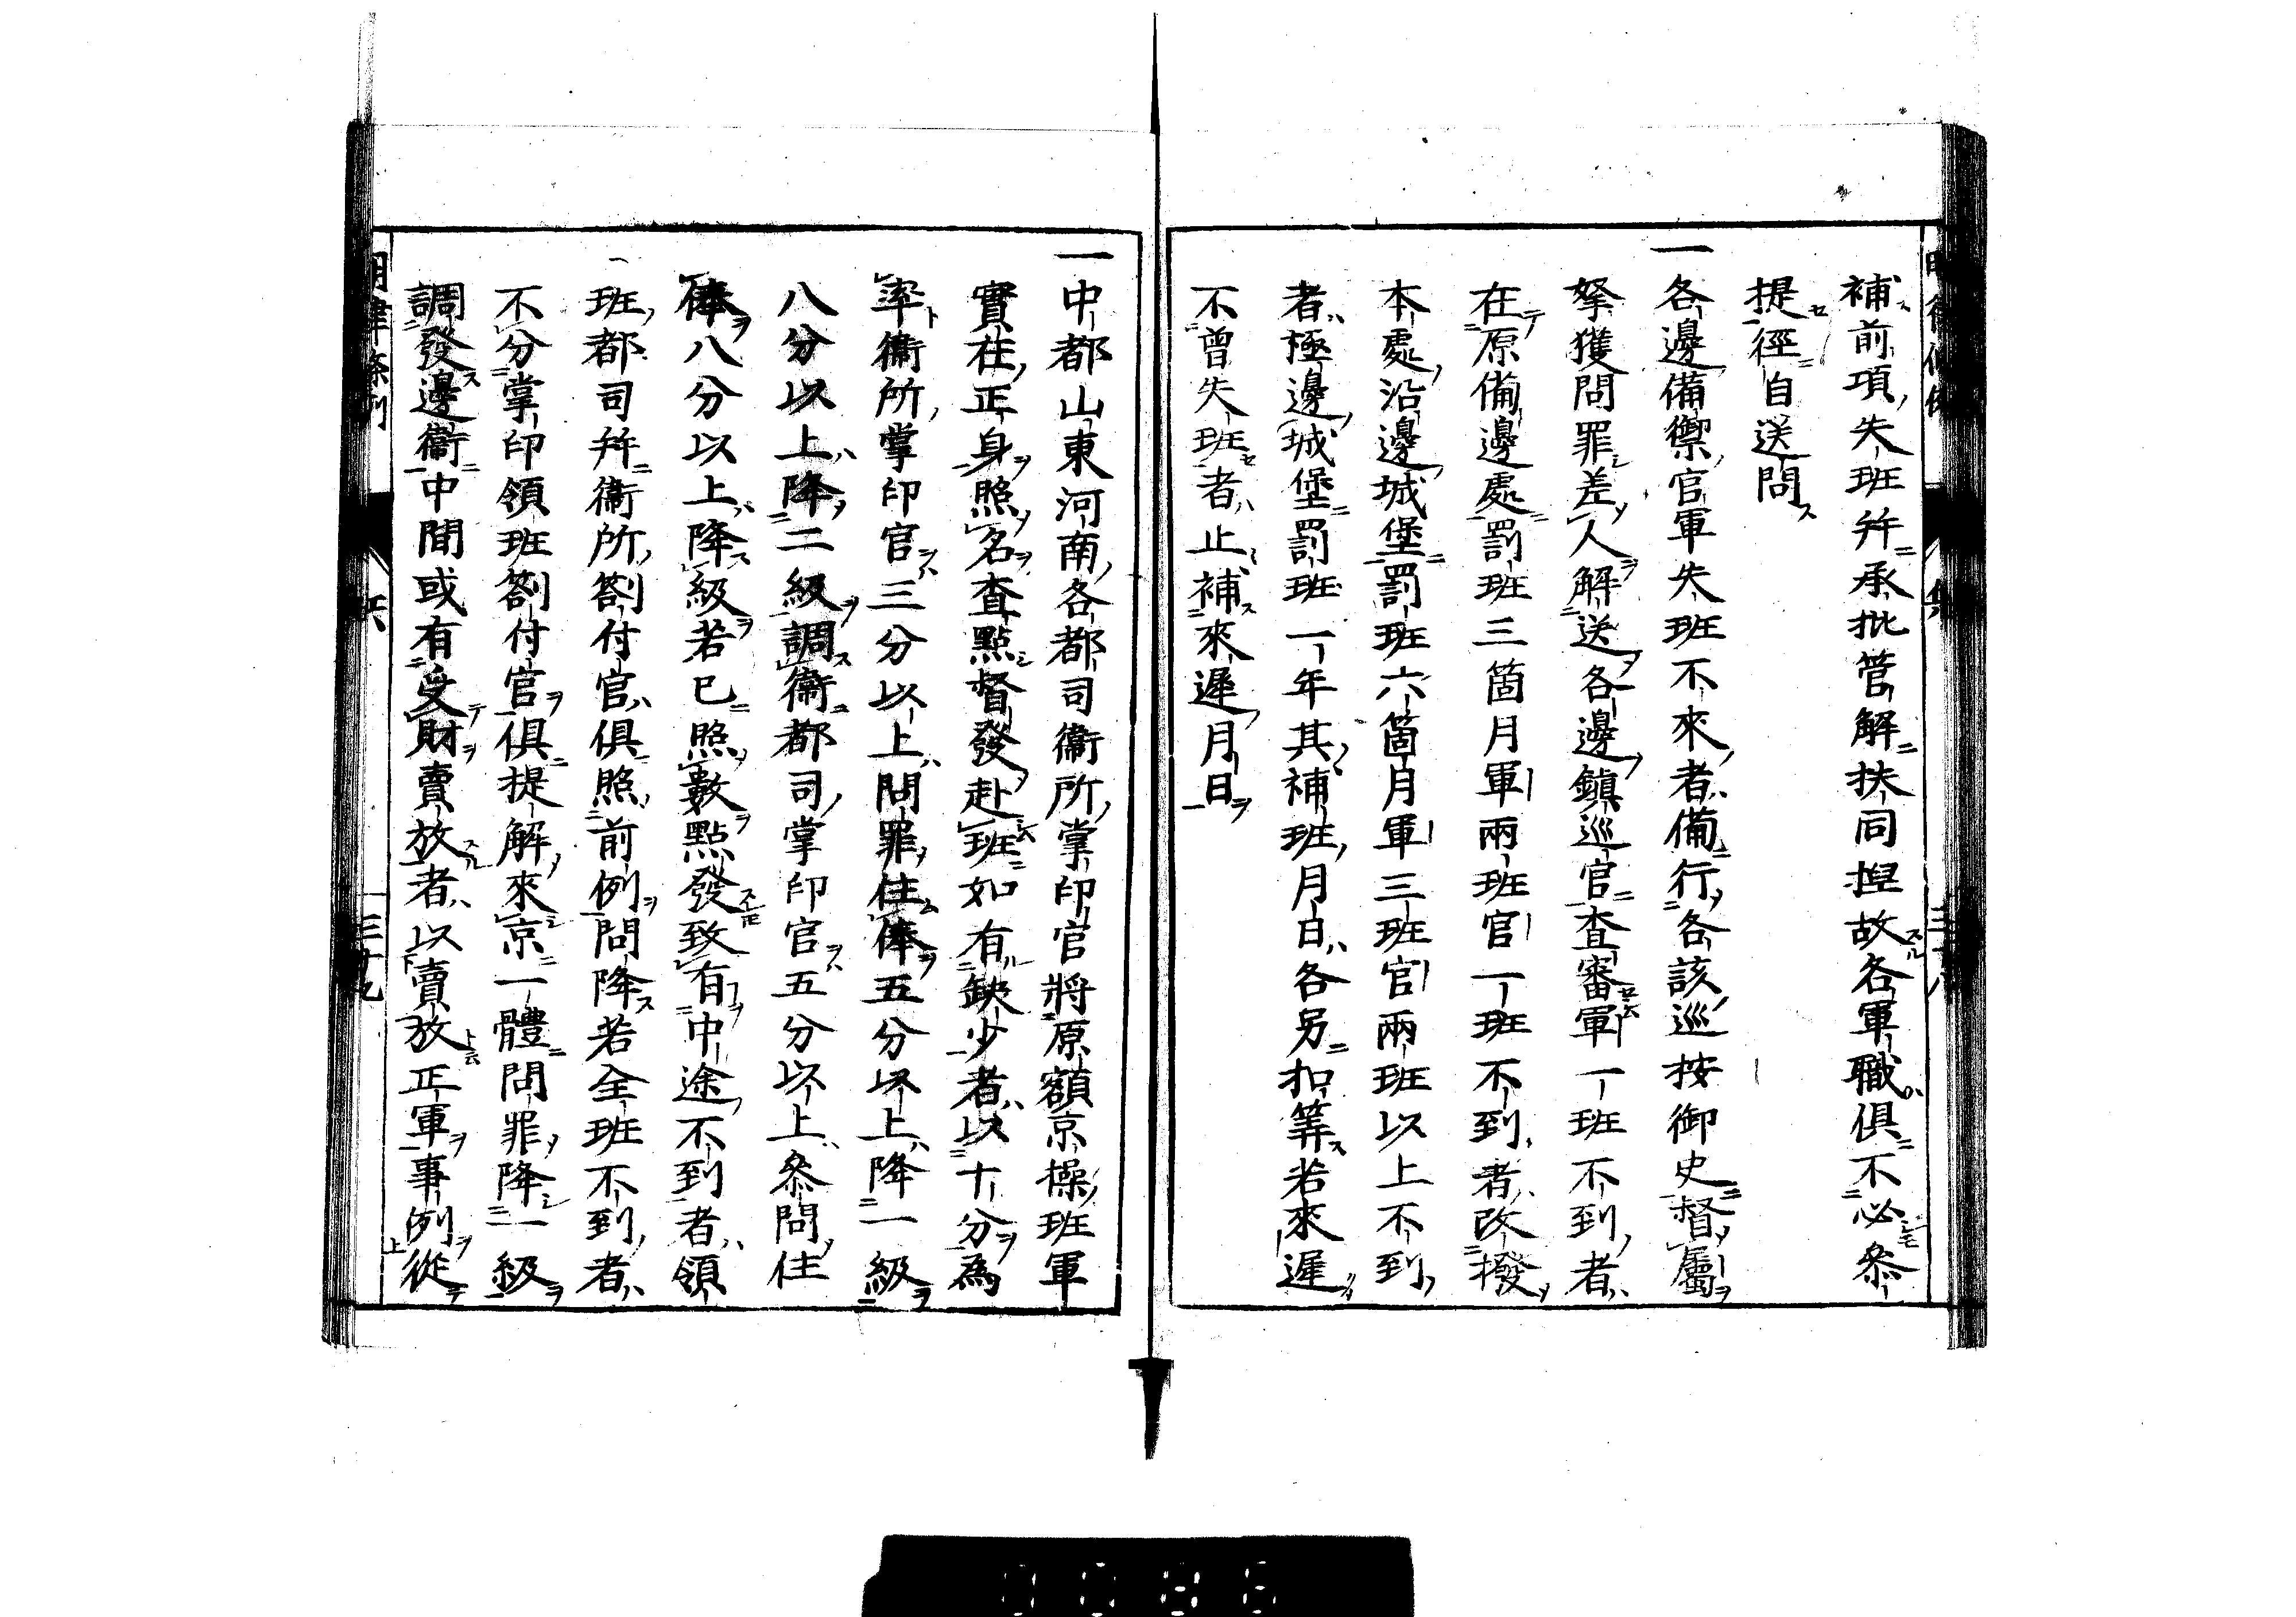 補前項失班幷承批管解扶同捏故各軍職俱不必叅
提徑自送問
一各邊備禦官軍失班不來者備行各該巡按御史督屬
拏獲問罪差人解送各邊鎮巡官查審軍一班不到者
在原備邊處罰班三箇月軍兩班官一班不到者改撥
本處沿邊城堡罰班六箇月軍三班官兩班以上不到
者極邊城堡罰班一年其補班月日各另扣筭若來遲
不曾失班者止補來遲月日
一中都山東河南各都司衞所掌印官將原額京操班軍
實在正身照名查點督發赴班如有缺少者以十分為
率衞所掌印官三分以上問罪住俸五分以上降一級
八分以上降二級調衞都司掌印官五分以上叅問住
俸八分以上降級若已照數點發致有中途不到者領
班都司幷衞所劄付官俱照前例問降若全班不到者
不分掌印領班劄付官俱提解來京一體問罪降一級
調發邊衞中間或有受財賣放者以賣放正軍事例從
明律條例
三十九